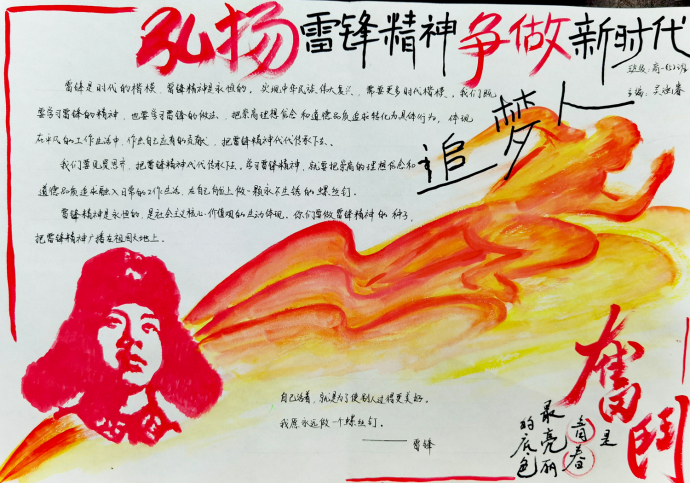 弘扬雷锋精神争做新时代
追梦人
雷锋是时代的楷模，雷锋精神是永恒的。实现中华民族伟大复兴，需要更多时代楷模。我们既
要学习雷锋的精神，也要学习雷锋的做法，把崇高理想信念和道德品质追求转化为具体行动，体现
在平凡的工作生活中，作出自己应有的贡献，把雷锋精神代代传承下去。
我们要见贤思齐，把雷锋精神代代传承下去。学习雷锋精神，就要把崇高的理想信念和
道德品质追求融入日常的工作生活，在自己岗位上做一颗永不生锈的螺丝钉。
雷锋精神是永恒的，是社会主义核心价值观的生动体现。你们要做雷锋精神的种子，
把雷锋精神广播在祖国大地上。
自己活着，就是为了使别人过得更美好。
我愿永远做一个螺丝钉。
——雷锋
奋斗
是
青春
最亮丽
的底色